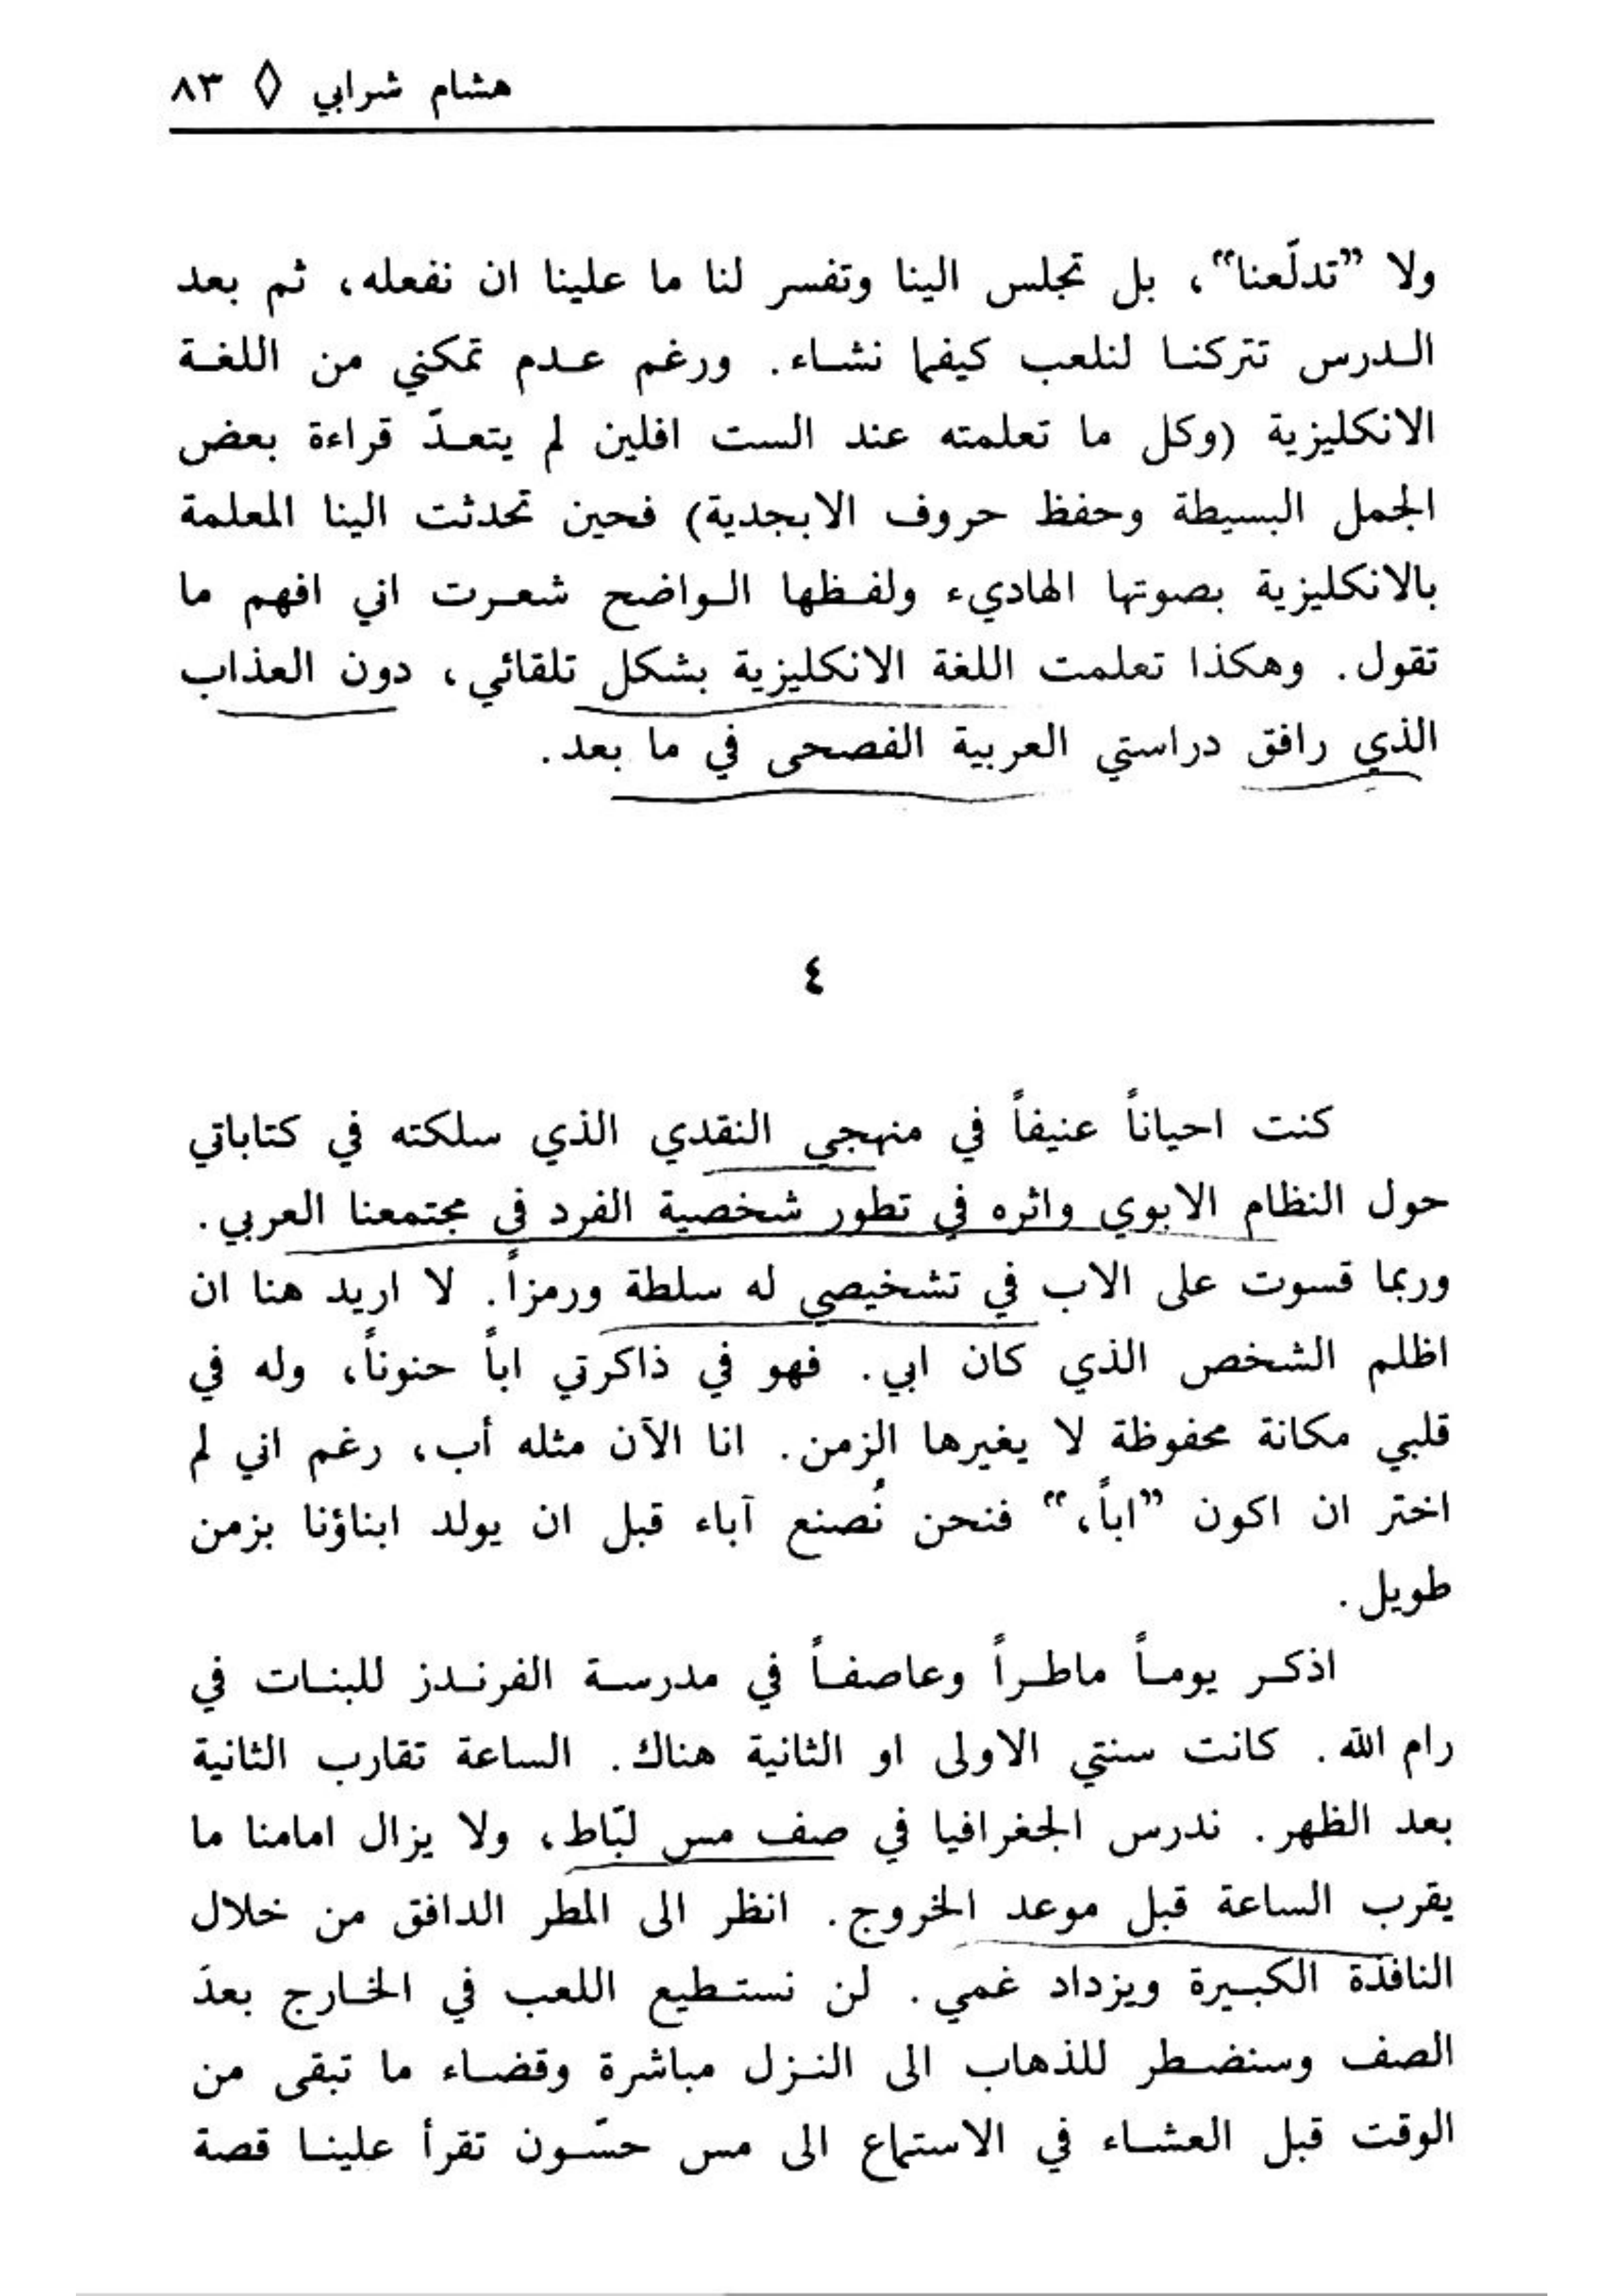 هشام شرابي ◊ ٨٣
ولا ”تدلّعنا“، بل تجلس الينا وتفسر لنا ما علينا ان نفعله، ثم بعد
الدرس تتركنا لنلعب كيفما نشاء. ورغم عدم تمكني من اللغة
الانكليزية (وكل ما تعلمته عند الست افلين لم يتعدّ قراءة بعض
الجمل البسيطة وحفظ حروف الابجدية) فحين تحدثت الينا المعلمة
بالانكليزية بصوتها الهاديء ولفظها الواضح شعرت اني افهم ما
تقول. وهكذا تعلمت اللغة الانكليزية بشكل تلقائي، دون العذاب
الذي رافق دراستي العربية الفصحى في ما بعد.
٤
كنت احياناً عنيفاً في منهجي النقدي الذي سلكته في كتاباتي
حول النظام الابوي واثره في تطور شخصية الفرد في مجتمعنا العربي.
وربما قسوت على الاب في تشخيصي له سلطة ورمزاً. لا اريد هنا ان
اظلم الشخص الذي كان ابي. فهو في ذاكرتي اباً حنوناً، وله في
قلبي مكانة محفوظة لا يغيرها الزمن. انا الآن مثله أب، رغم اني لم
اختر ان اكون ”اباً،“ فنحن نُصنع آباء قبل ان يولد ابناؤنا بزمن
طويل.
اذكر يوماً ماطراً وعاصفاً في مدرسة الفرندز للبنات في
رام الله. كانت سنتي الاولى او الثانية هناك. الساعة تقارب الثانية
بعد الظهر. ندرس الجغرافيا في صف مس لبّاط، ولا يزال امامنا ما
يقرب الساعة قبل موعد الخروج. انظر الى المطر الدافق من خلال
النافذة الكبيرة ويزداد غمي. لن نستطيع اللعب في الخارج بعدَ
الصف وسنضطر للذهاب الى النزل مباشرة وقضاء ما تبقى من
الوقت قبل العشاء في الاستماع الى مس حسّون تقرأ علينا قصة